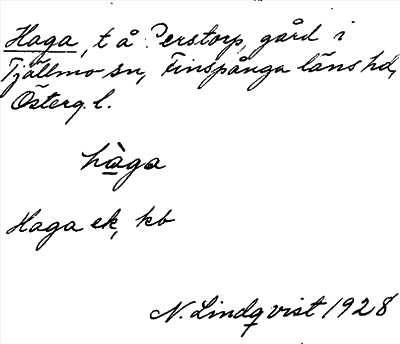 Haga, t å Perstorp, gård i
Tjällmo sn, Finspånga läns hd,
Österg. l.
hàga
Haga ek, kb
N. Lindqvist 1928